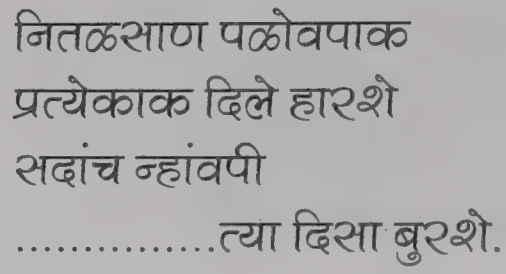 नितळसाण पळोवपाक
प्रत्येकाक दिले हारशे
सदांच न्हांवपी
...............त्या दिसा बुरशे.